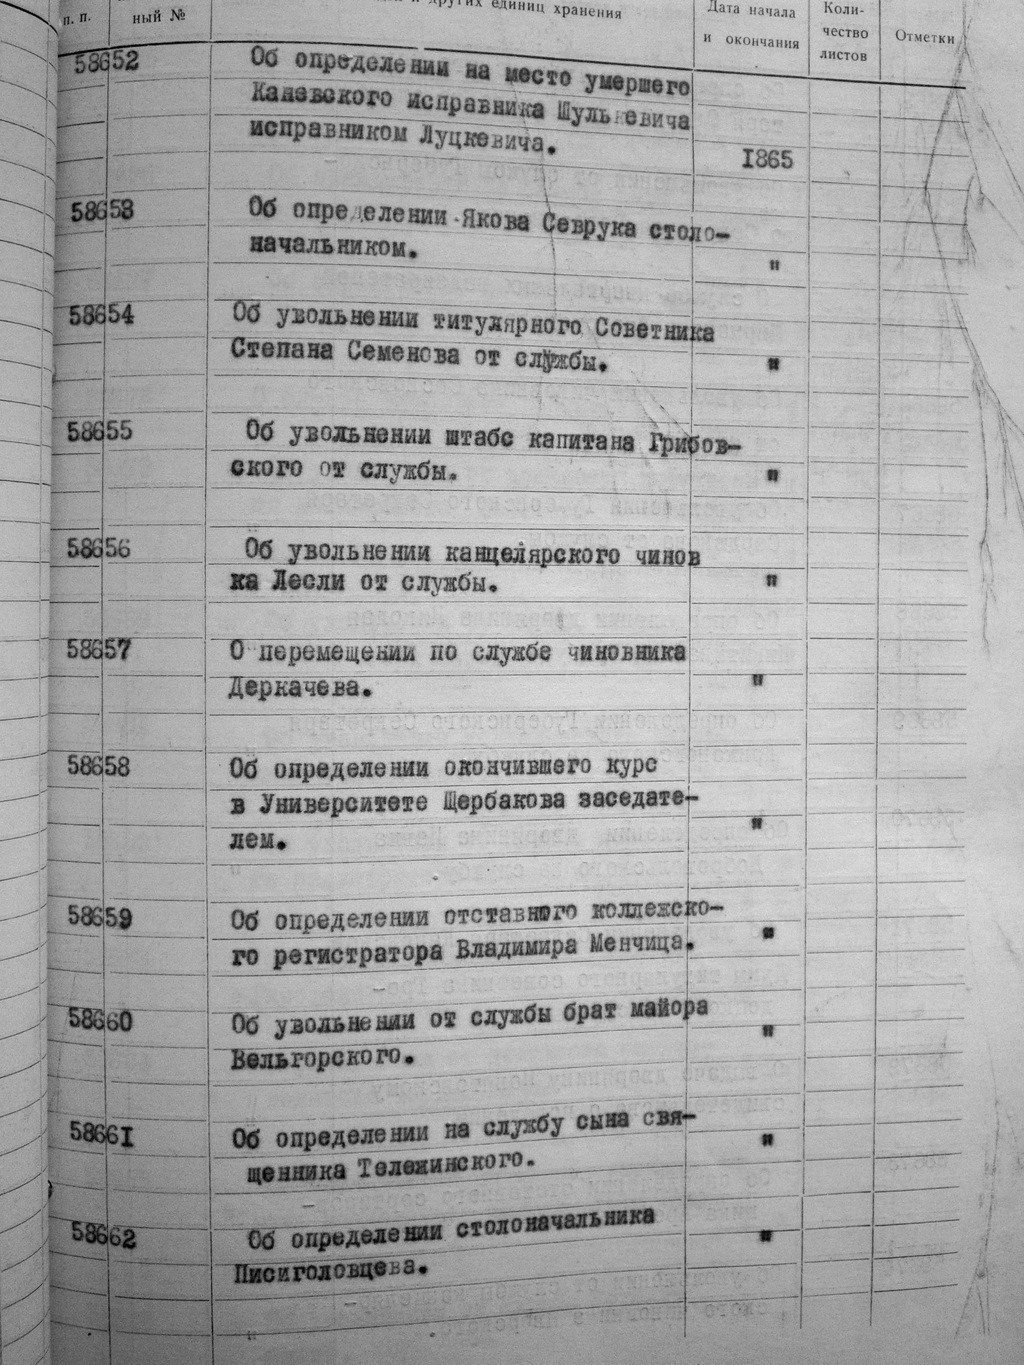 п. п.
ный №
и других единиц хранения
Дата начала
и окончания
Коли-
чество
листов
Отметки
58652 Об определении на место умершего
Каневского исправника Шулькевича
исправником Луцкевича.
1865
58653 Об определении Якова Севрука столо-
начальником. "
58654 Об увольнении титулярного Советника
Степана Семенова от службы. "
58655 Об увольнении штабс капитана Грибов-
ского от службы. "
58656 Об увольнении канцелярского чинов
ка Лесли от службы. "
58657 О перемещении по службе чиновника
Деркачева. "
58658 Об определении окончившего курс
в Университете Щербакова заседате-
лем. "
58659 Об определении отставного коллежско-
го регистратора Владимира Менчица. "
58660 Об увольнении от службы брат майора
Вельгорского. "
58661 Об определении на службу сына свя-
щенника Тележинского. "
58662 Об определении столоначальника
Писиголовцева. "